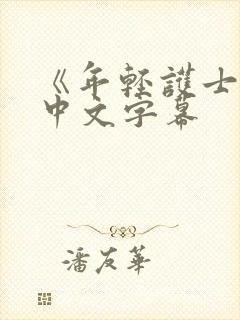 《年轻護士
中文字幕
潘友華